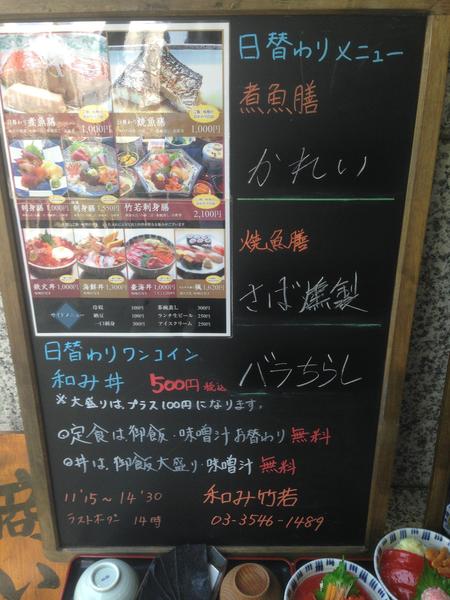 日替わりメニュー
煮魚膳
かれい
焼魚膳
さば燻製
日替わりワンコイン
和み丼 500円 税込
バラちらし
※大盛りは、プラス100円になります。
◎定食は、御飯・味噌汁お替わり無料
◎丼は、御飯大盛り・味噌汁 無料
11'15～14'30
ラストオーダー 14時
和み竹若
03-3546-1489
日替わり煮魚膳 1,000円
日替わり焼魚膳 1,000円
刺身膳 1,000円
刺身膳 1,550円
竹若刺身膳 2,100円
鉄火丼 1,000円
海鮮丼 1,300円
1,000円
1,620円
サイドメニュー
冷奴 100円
納豆 100円
一口刺身 300円
茶碗蒸し 300円
ランチ生ビール 250円
アイスクリーム 250円